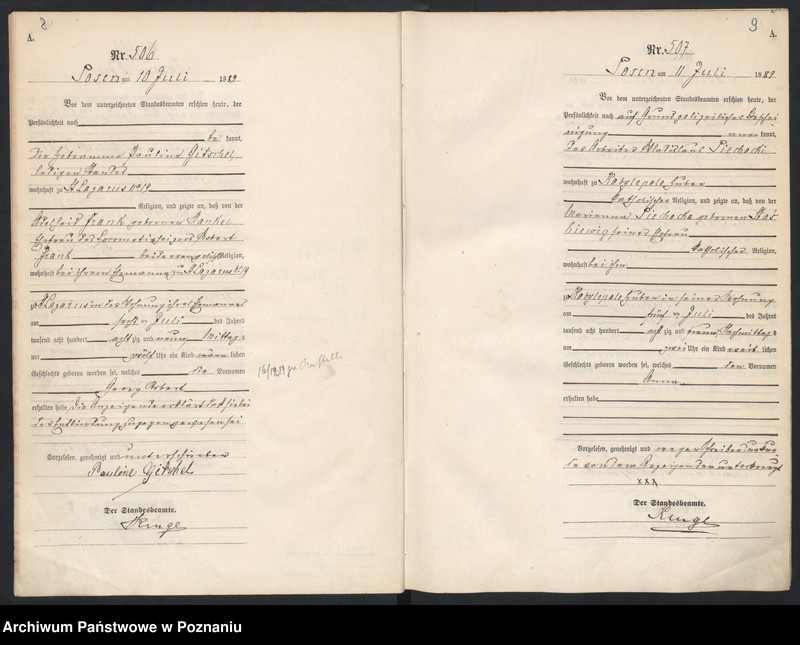 8
A.
Nr. 506.
Posen am 10 Juli 1889
Vor dem unterzeichneten Standesbeamten erschien heute, der
Persönlichkeit nach
be kannt,
die Hebamme Pauline Gitschel
ledigen Standes
wohnhaft zu St Lazarus No 19
Religion, und zeigte an, daß von der
Frank geborenen
Ehefrau des Locomotivheizers Robert
Frank beide evangelischer Religion,
wohnhaft bei ihrem Ehemanne zu St Lazarus No 19
zu St Lazarus in der Wohnung ihres Ehemannes
am sechs ten Juli des Jahres
tausend acht hundert acht zig und neun Mittags
um zwölf Uhr ein Kind männ lichen
Geschlechts geboren worden sei, welches die Vornamen
Georg Robert
erhalten habe, die Anzeigende erklärt daß sie bei
der Entbindung zugegen gewesen sei
Vorgelesen, genehmigt und unterschrieben
Pauline Gitschel
Der Standesbeamte.
9
A.
Nr. 507
Posen am 11 Juli 1889.
Vor dem unterzeichneten Standesbeamten erschien heute, der
Persönlichkeit nach auf Grund polizeilicher Beschei
nigung aner kannt,
der Arbeiter Wladislaus Piechocki
wohnhaft zu
katholischer Religion, und zeigte an, daß von der
Marianna Piechocka geborenen
seiner Ehefrau
katholischer Religion,
wohnhaft bei ihm
zu in seiner Wohnung
am fünf ten Juli des Jahres
tausend acht hundert acht zig und neun, Nachmittags
um zwei Uhr ein Kind weib lichen
Geschlechts geboren worden sei, welches den Vornamen
Anna
erhalten habe
Vorgelesen, genehmigt und wegen Schreibensunkun
de von dem Anzeigenden unterkreuzt
xxx
Der Standesbeamte.
Archiwum Państwowe w Poznaniu